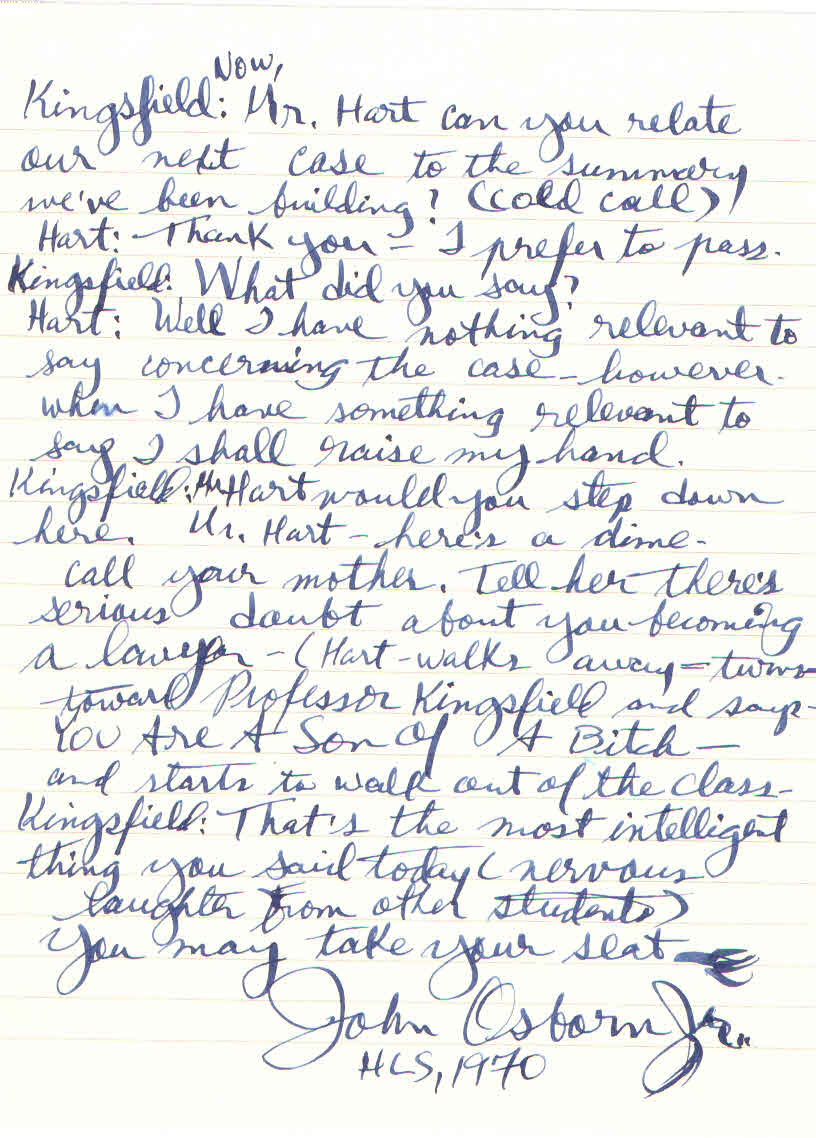 Now,
Kingsfield: Mr. Hart can you relate
our next case to the summary
we've been building? (Cold call)
Hart: Thank you – I prefer to pass.
Kingsfield: What did you say?
Hart: Well I have nothing relevant to
say concerning the case – however –
when I have something relevant to
say I shall raise my hand.
Kingsfield: Mr Hart would you step down
here. Mr. Hart – here's a dime –
call your mother. Tell her there's
serious doubt about you becoming
a lawyer – (Hart – walks away – turns
toward Professor Kingsfield and says –
You Are A Son Of A Bitch –
and starts to walk out of the class –
Kingsfield: That's the most intelligent
thing you said today (nervous
laughter from other students)
You may take your seat
John Osborn Jr.
HLS, 1970